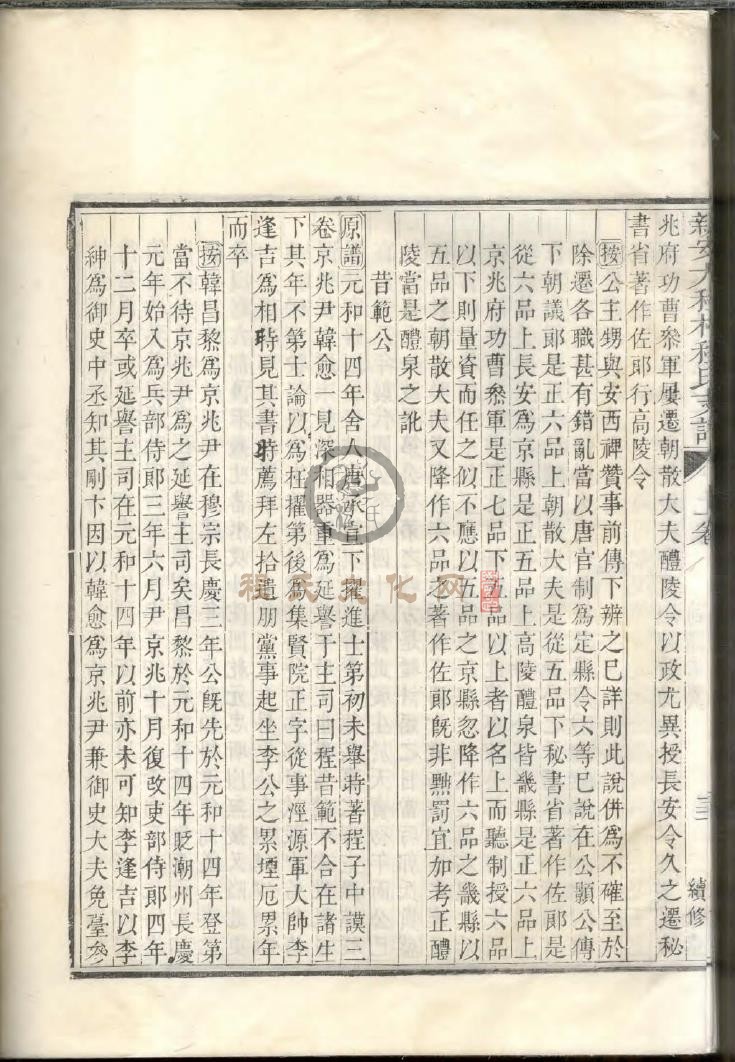 兆府功曹叅軍屢遷朝散大夫醴陵令以政尤異授長安令久之遷秘
書省著作佐郎行高陵令
按公主甥與安西裨贊事前傳下辨之巳詳則此說併爲不確至於
除遷各職甚有錯亂當以唐官制爲定縣令六等巳說在公顥公傳
下朝議郎是正六品上朝散大夫是從五品下秘書省著作佐郎是
從六品上長安爲京縣是正五品上高陵醴泉皆畿縣是正六品上
京兆府功曹叅軍是正七品下五品以上者以名上而聽制授六品
以下則量資而任之似不應以五品之京縣忽降作六品之畿縣以
五品之朝散大夫又降作六品之著作佐郎旣非黜罰宜加考正醴
陵當是醴泉之訛
昔範公
原譜元和十四年舍人庾承宣下擢進士第初未舉時著程子中謨三
卷京兆尹韓愈一見深相器重爲延譽于主司曰程昔範不合在諸生
下其年不第士論以爲枉擢第後爲集賢院正字從事涇源軍大帥李
逢吉爲相時見其書時薦拜左拾遺朋黨事起坐李公之累堙厄累年
而卒
按韓昌黎爲京兆尹在穆宗長慶三年公旣先於元和十四年登第
當不待京兆尹爲之延譽主司矣昌黎於元和十四年貶潮州長慶
元年始入爲兵部侍郎三年六月尹京兆十月復改吏部侍郎四年
十二月卒或延譽主司在元和十四年以前亦未可知李逢吉以李
紳爲御史中丞知其剛卞因以韓愈爲京兆尹兼御史大夫免臺叅
新安大程村程氏支譜
上卷
續修
程氏文化网